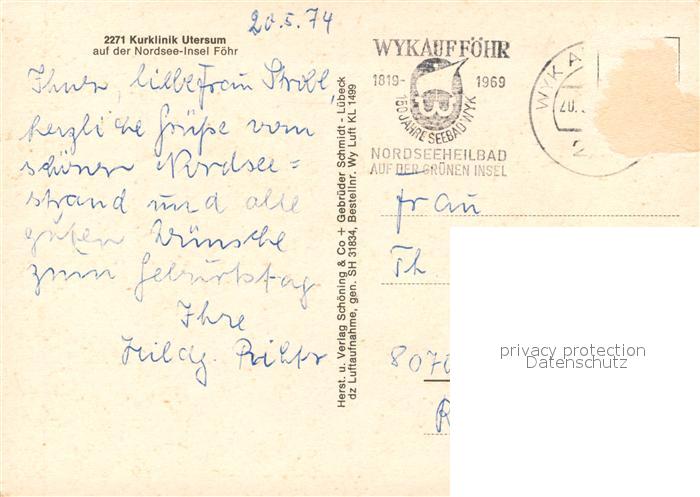 20.5.74
2271 Kurklinik Utersum
auf der Nordsee-Insel Föhr
Ihnen, liebe Frau Strobl,
herzliche Grüße vom
schönen Nordsee=
strand und alle
guten Wünsche
zum Geburtstag
Ihre
Hildg. Richter
Herst. u. Verlag Schöning & Co + Gebrüder Schmidt - Lübeck
dz Luftaufnahme, gen. SH 31834, Bestellnr. Wy Luft KL 1499
WYK AUF FÖHR
1819-1969
150 JAHRE SEEBAD WYK
NORDSEEHEILBAD
AUF DER GRÜNEN INSEL
WYK A
20.
2
Frau
Th
8070
R
privacy protection
Datenschutz